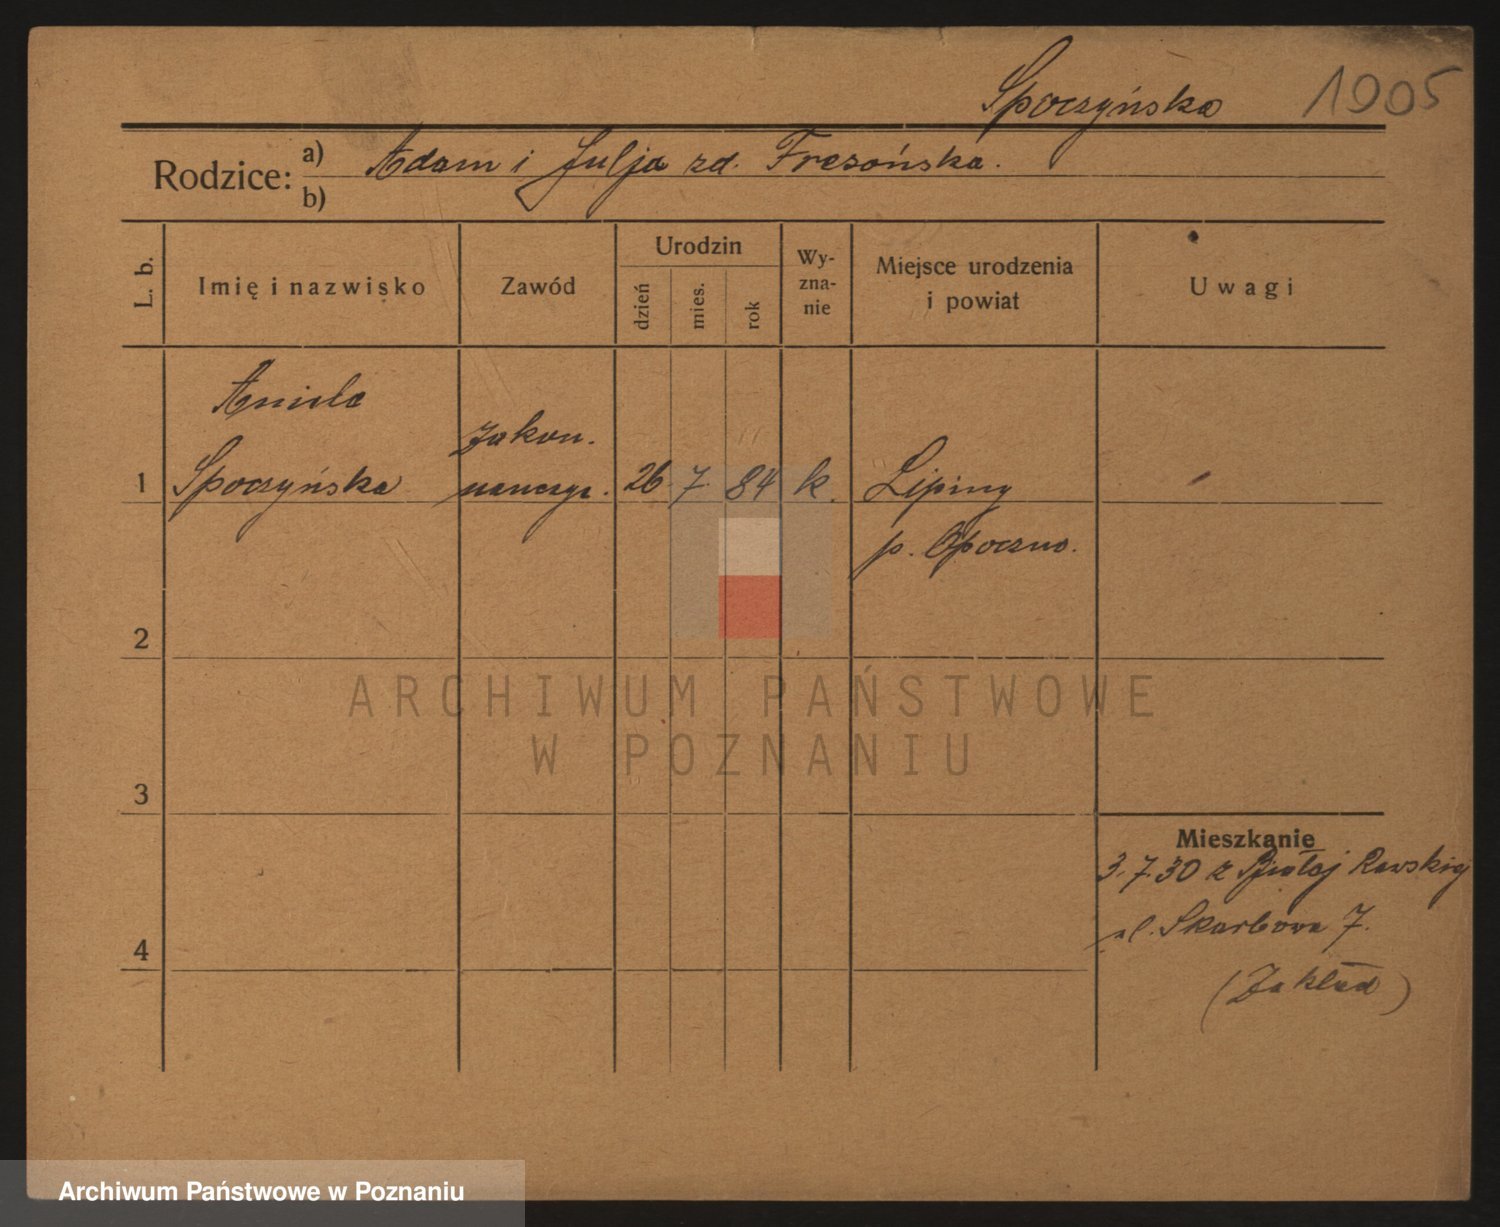 Spoczyńska 1905
Rodzice: a) Adam i Julja zd.
b)
L. b.
Imię i nazwisko
Zawód
Urodzin
dzień
mies.
rok
Wy-
zna-
nie
Miejsce urodzenia
i powiat
Uwagi
Aniela
Zakon.
1 Spoczyńska nauczyc. 26 7 84 k. Lipiny
p. Opoczno.
2
3
Mieszkanie
3.7.30 z Białej Rawskiej
ul. Skarbowa 7.
4
(Zakład)
ARCHIWUM PAŃSTWOWE
W POZNANIU
Archiwum Państwowe w Poznaniu